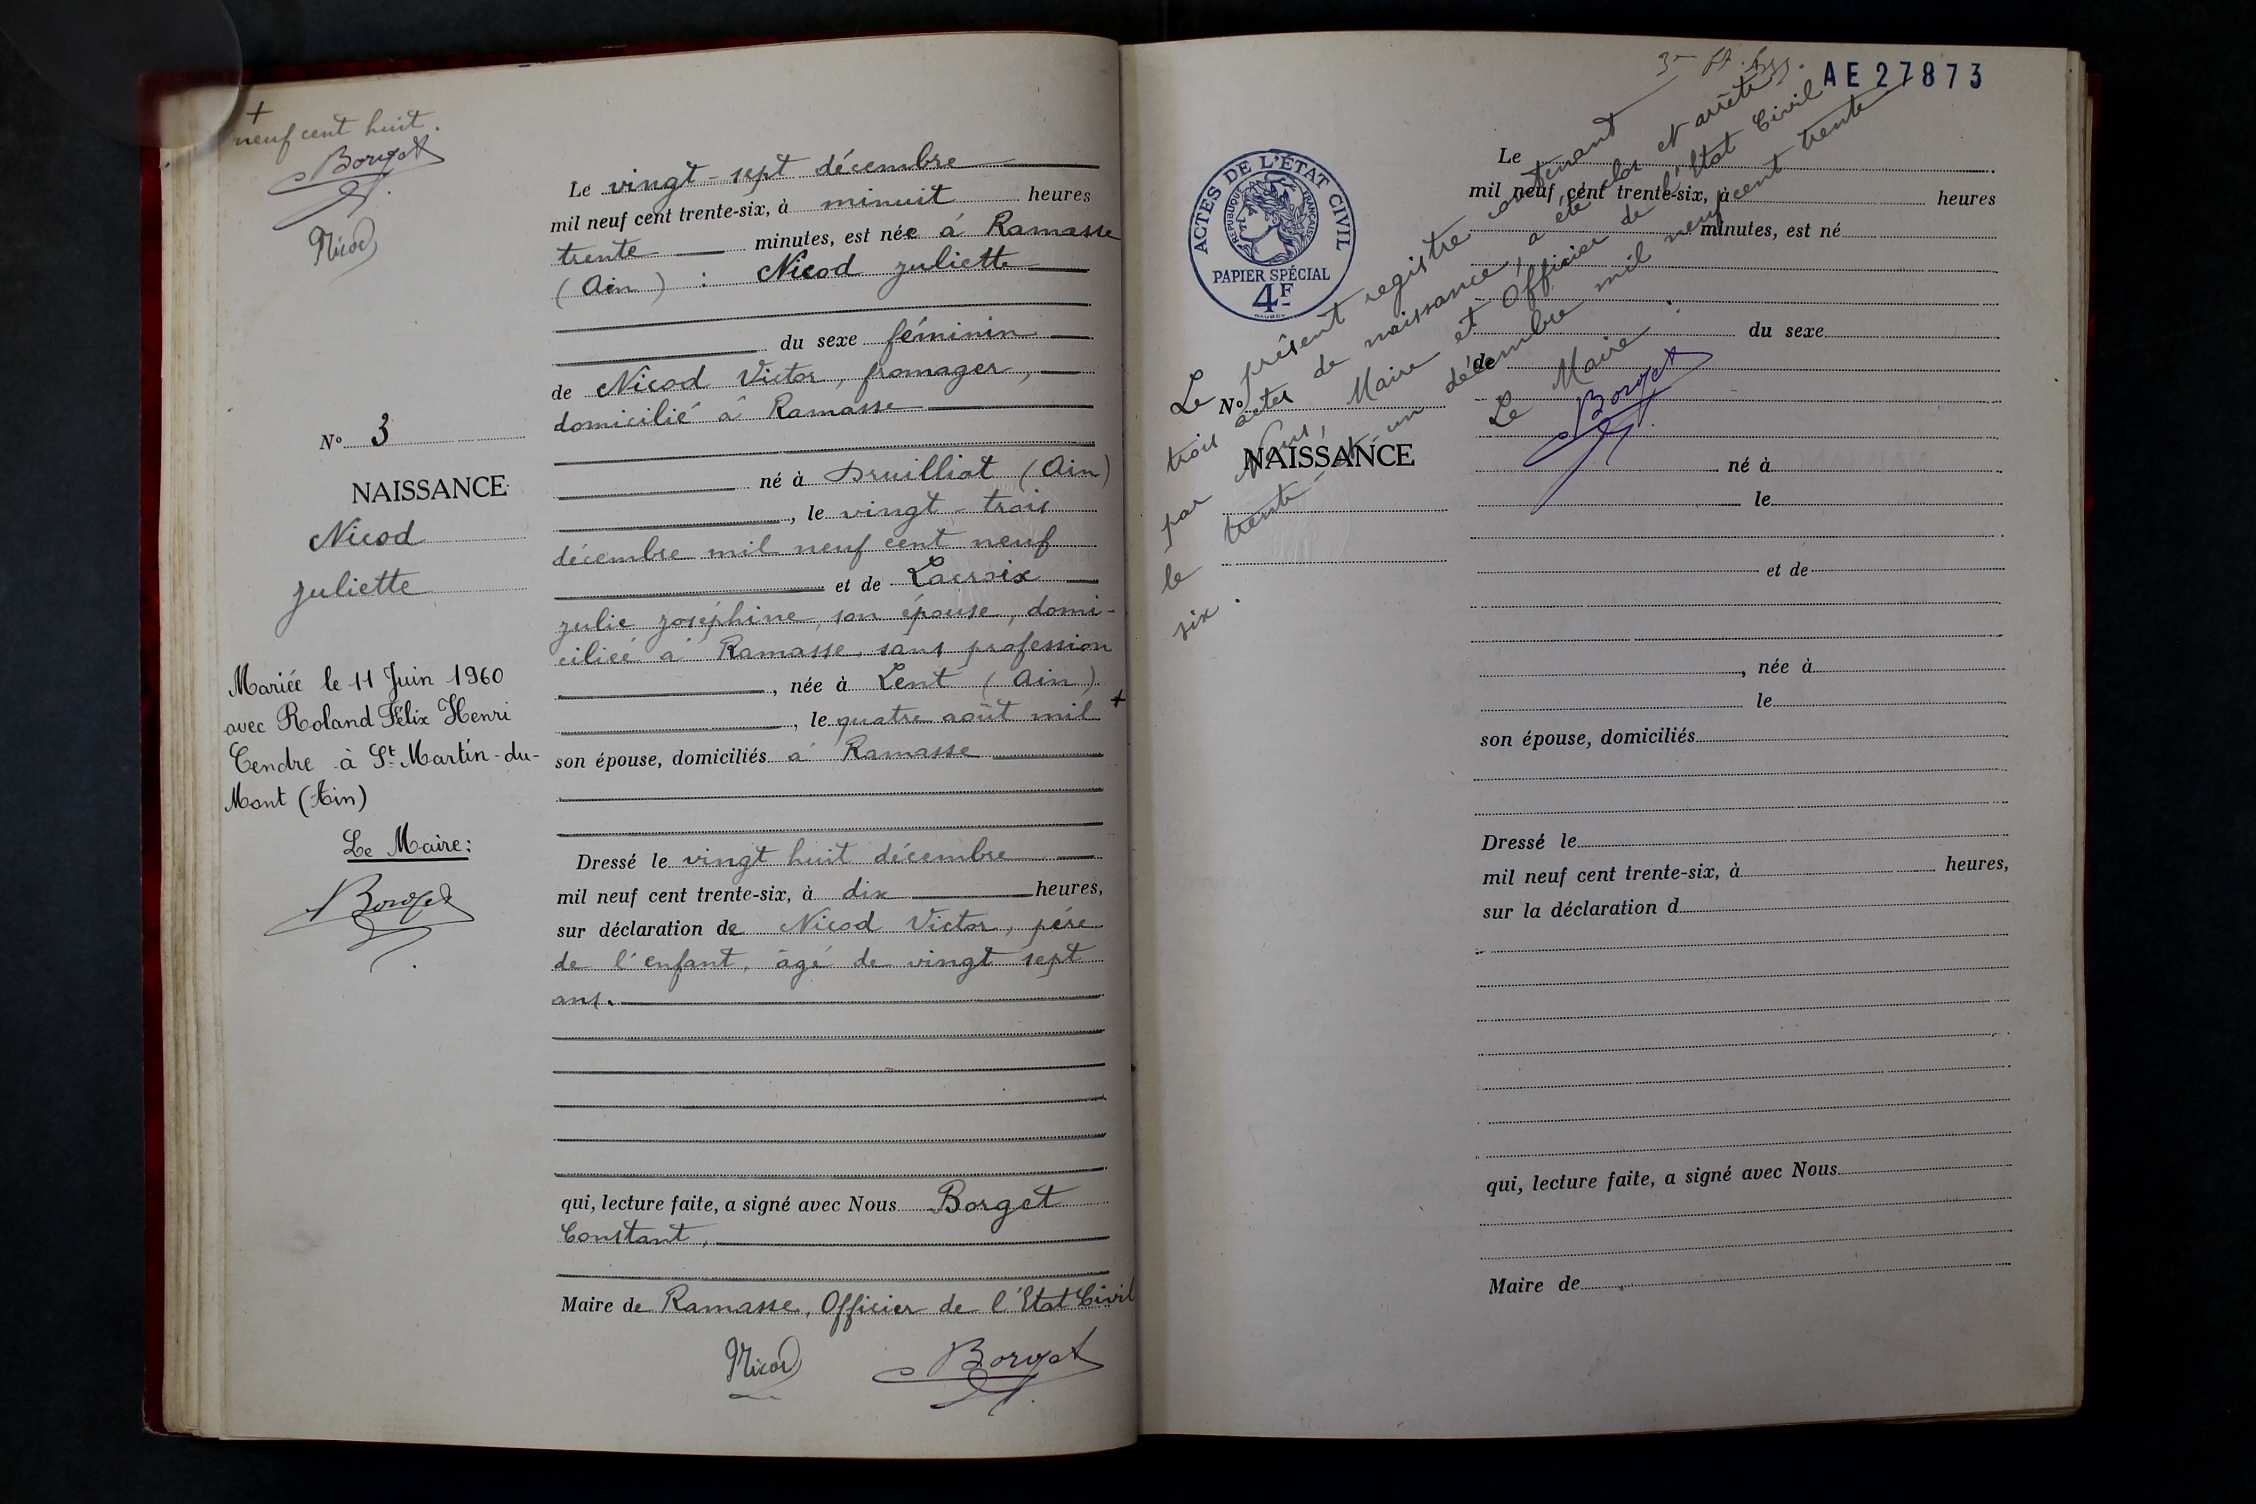 +
neuf cent huit.
Borget
Nicod
Le vingt-sept décembre
mil neuf cent trente-six, à minuit heures
trente minutes, est née à Ramasse
(Ain) : Nicod Juliette
du sexe féminin
de Nicod Victor, fromager,
domicilié à Ramasse
né à Druilliat (Ain)
, le vingt-trois
décembre mil neuf cent neuf
et de Lacroix
Julie Joséphine, son épouse, domi-
ciliée à Ramasse, sans profession
, née à Lent (Ain)
, le quatre août mil +
son épouse, domiciliés à Ramasse
Dressé le vingt huit décembre
mil neuf cent trente-six, à dix heures,
sur déclaration de Nicod Victor, père
de l'enfant, âgé de vingt sept
ans.
qui, lecture faite, a signé avec Nous Borget
Constant,
Maire de Ramasse, Officier de l'Etat Civil
Nicod Borget
N° 3
NAISSANCE
Nicod
Juliette
Mariée le 11 Juin 1960
avec Roland Félix Henri
Tendre à St Martin-du-
Mont (Ain)
Le Maire:
Borget
AE27873
ACTES DE L'ÉTAT CIVIL
RÉPUBLIQUE FRANÇAISE
PAPIER SPÉCIAL
4F
Le présent registre contenant
trois actes de naissance, a été clos et arrêté
par Nous, Maire et Officier de l'Etat Civil
le trente-et-un décembre mil neuf cent trente
six.
Le Maire :
Borget
N°
NAISSANCE
Le
mil neuf cent trente-six, à heures
minutes, est né
du sexe
de
né à
le
et de
, née à
le
son épouse, domiciliés
Dressé le
mil neuf cent trente-six, à heures,
sur la déclaration d
qui, lecture faite, a signé avec Nous
Maire de